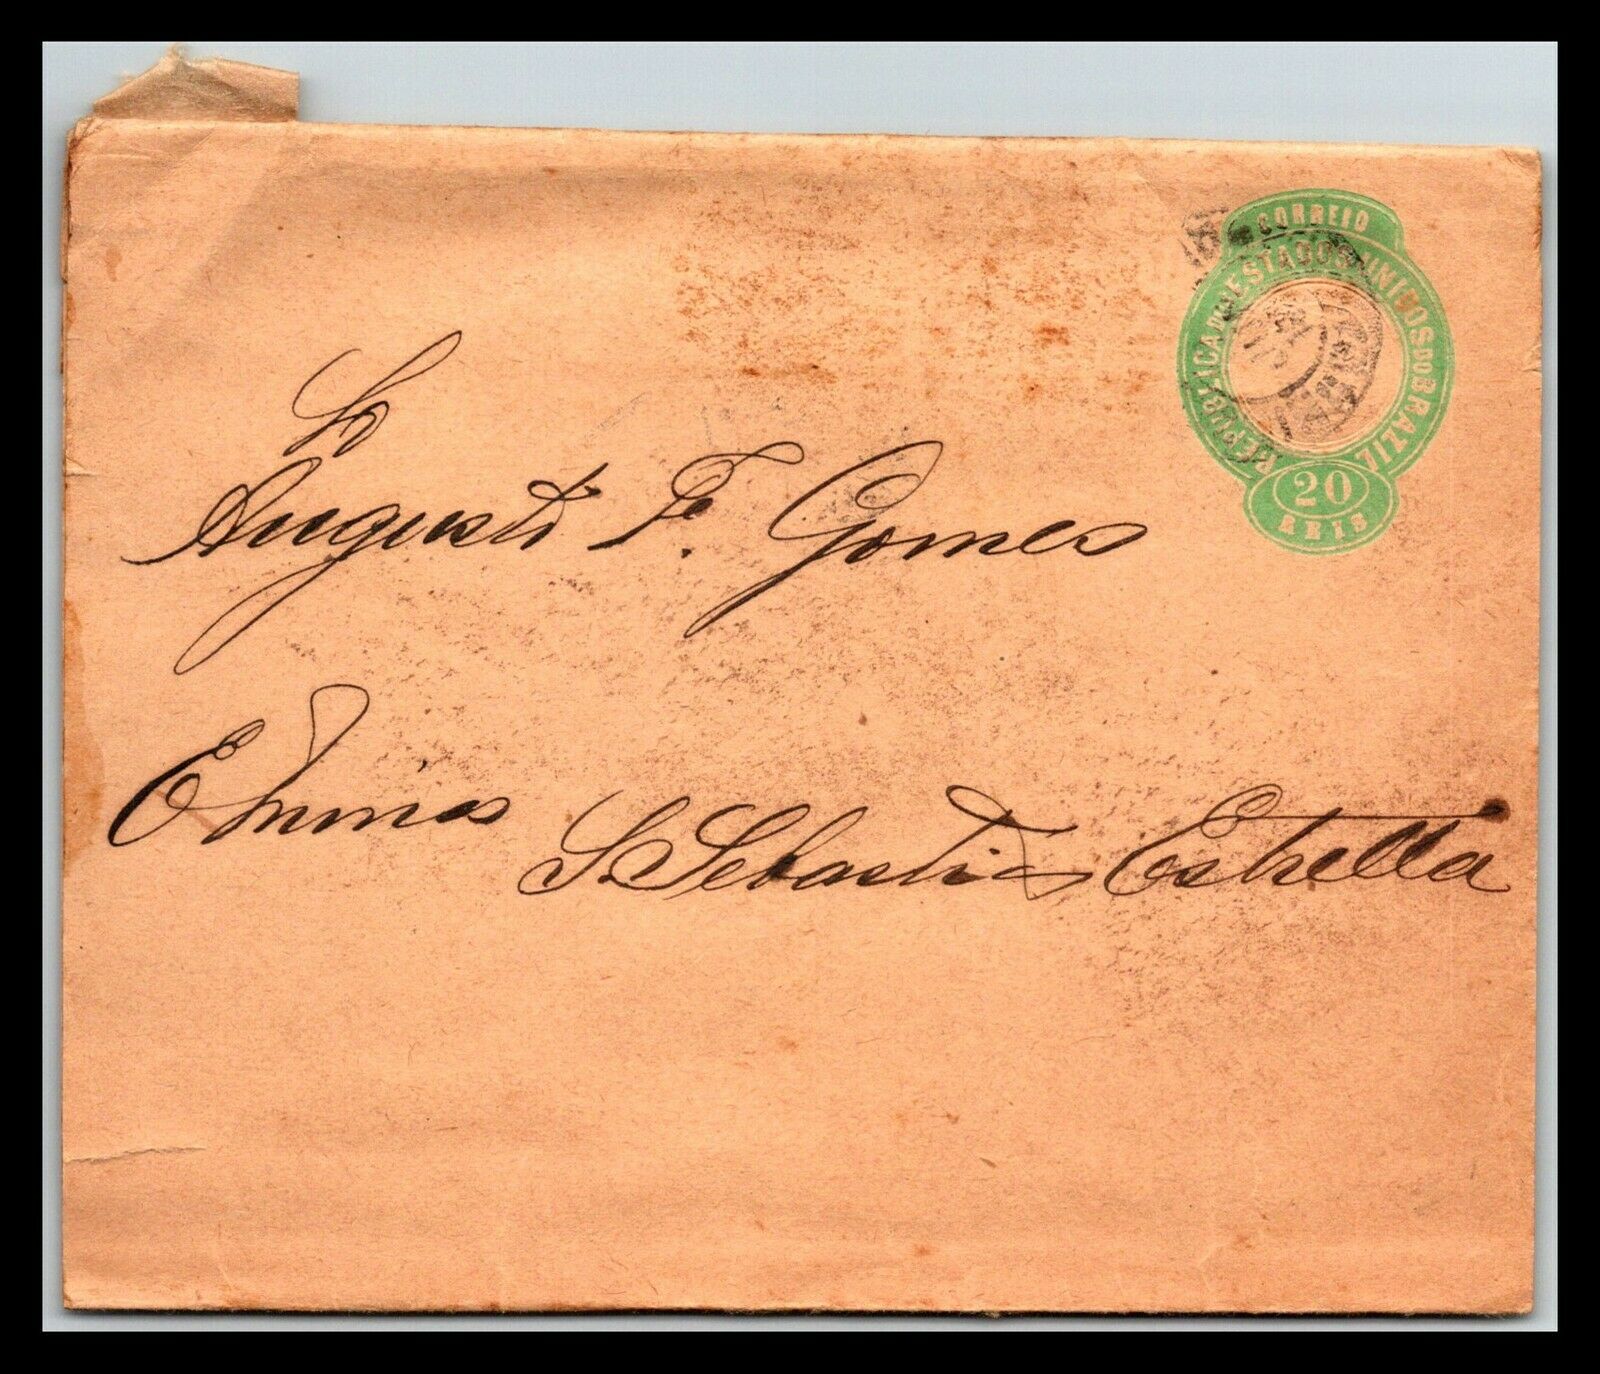 CORREIO
REPUBLICA DOS ESTADOS UNIDOS DO BRAZIL
20
REIS
Sr
Augusto F. Gomes
E. Minas
S. Sebastião Estrella